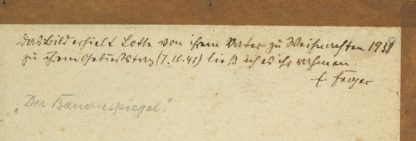 Das Bild erhielt Lotte von ihrem Vater zu Weihnachten 1938
zu ihrem Geburtstag (7.10.41) ließ ich es ihr rahmen.
"Der Bauernspiegel."